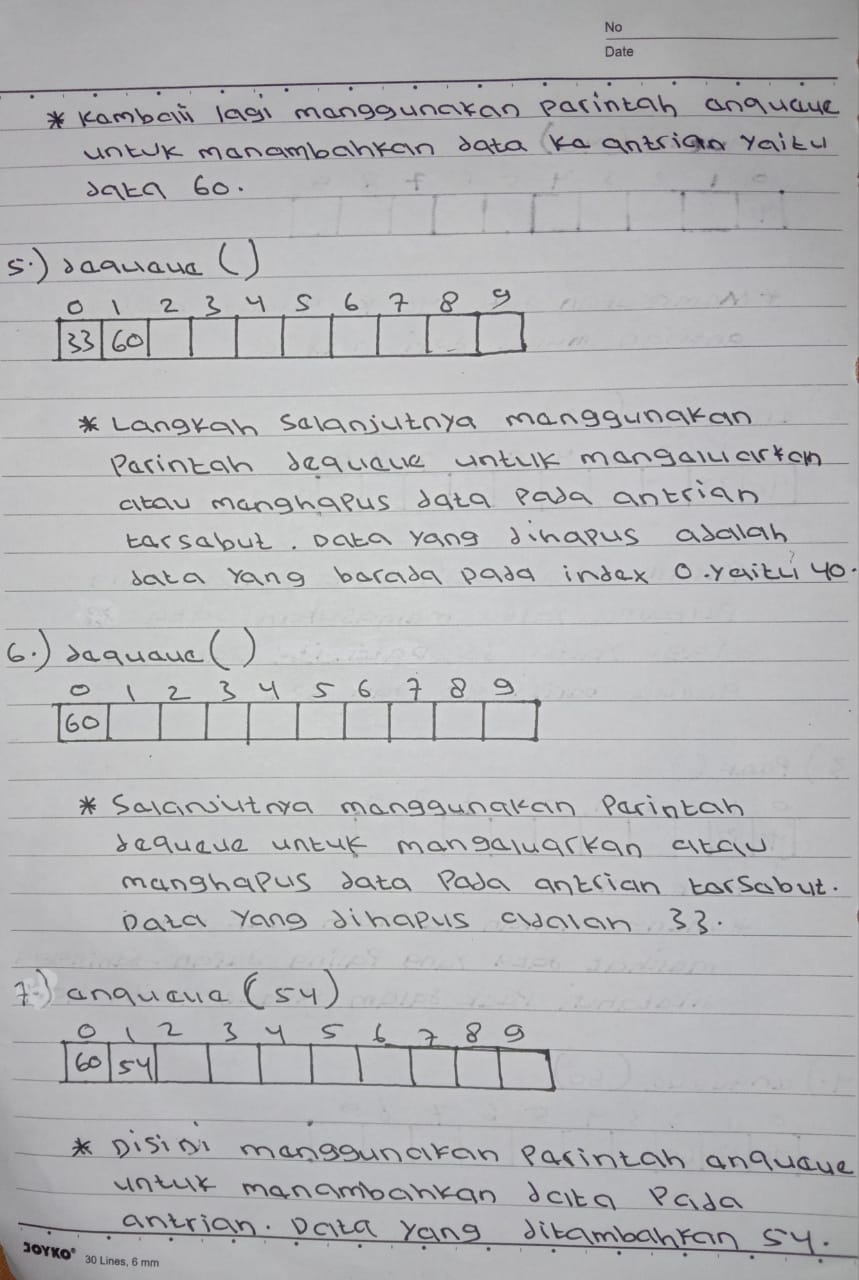 No
Date
* Kembali lagi menggunakan perintah enqueue
untuk menambahkan data ke antrian yaitu
data 60.
5.) dequeue ()
0 1 2 3 4 5 6 7 8 9
33 60
* Langkah selanjutnya menggunakan
Perintah dequeue untuk mengeluarkan
atau menghapus data pada antrian
tersebut. Data yang dihapus adalah
data yang berada pada index 0. yaitu 40.
6.) dequeue ()
0 1 2 3 4 5 6 7 8 9
60
* Selanjutnya menggunakan Perintah
dequeue untuk mengeluarkan atau
menghapus data Pada antrian tersebut.
Data yang dihapus adalah 33.
7.) enqueue (54)
0 1 2 3 4 5 6 7 8 9
60 54
* Disini menggunakan Perintah enqueue
untuk menambahkan data Pada
antrian. Data yang ditambahkan 54.
JOYKO® 30 Lines, 6 mm